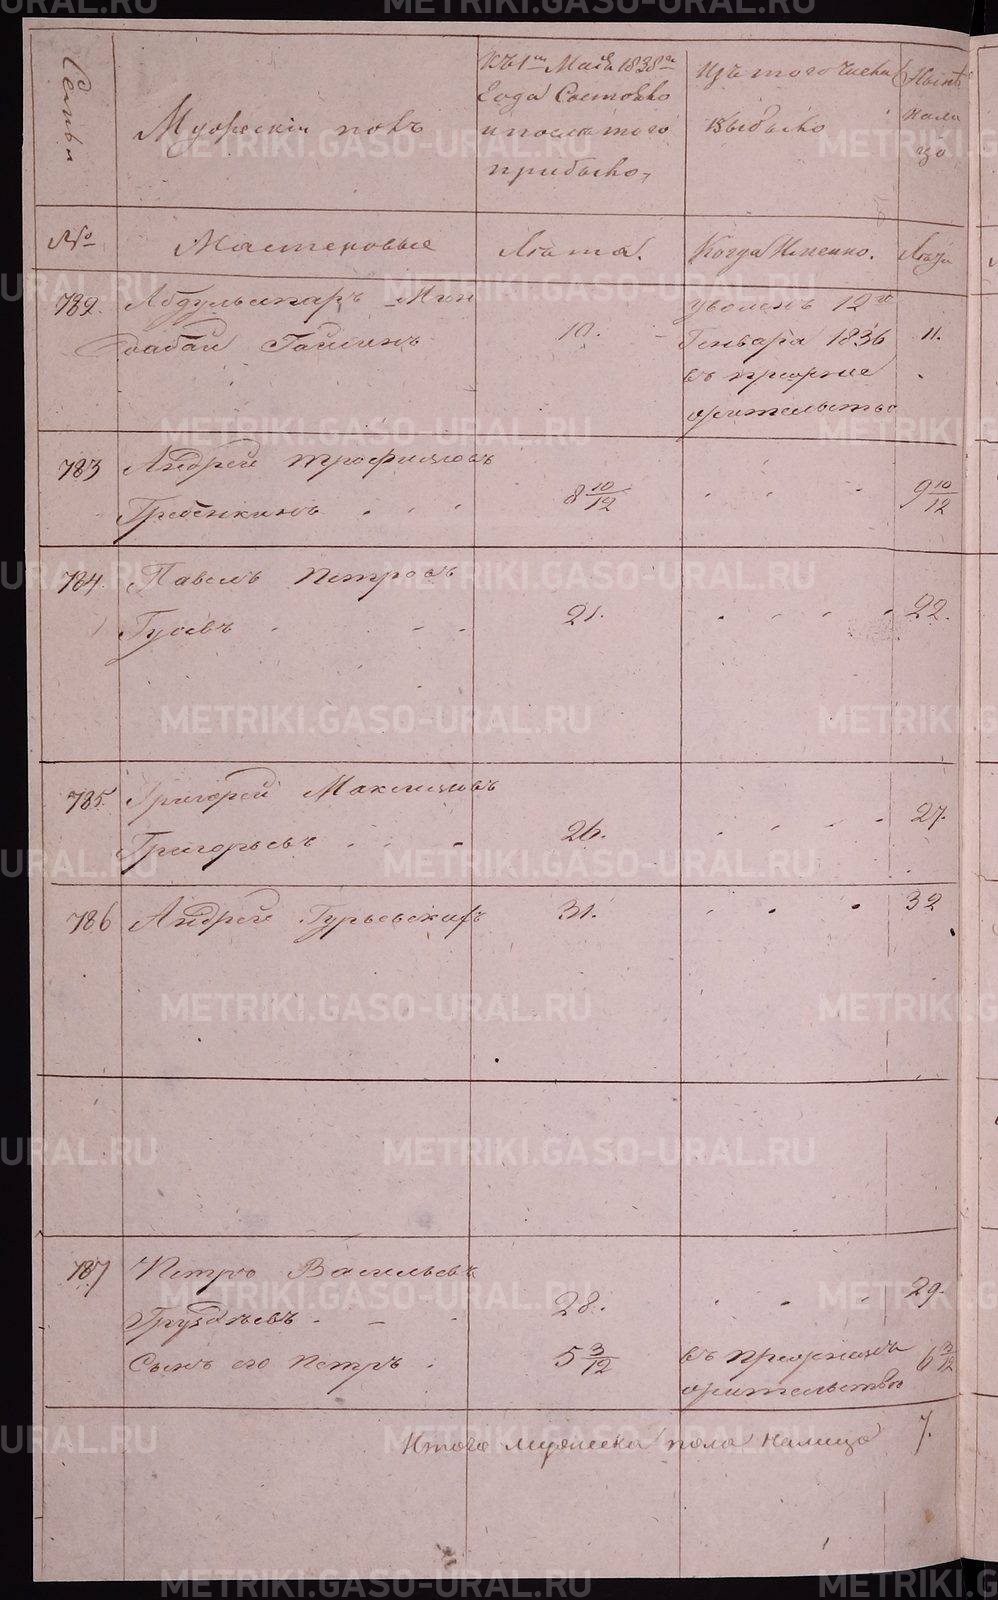 Семьи
Мужескiй полъ
Къ 1му Маiя 1838го
Года Состояло
и после того
прибыло,
Изъ того числа
выбыло
Ныне
налицо
№
Мастеровые
Лѣта.
Когда Именно.
Лѣта
782.
Абдульмаръ Мин
10.
уволенъ 12го
Генваря 1836
въ прежнее
жительство
11.
783
Андрей Трофимовъ
Гребенкинъ
8 10/12
9 10/12
784.
Павелъ Петровъ
Гусевъ
21.
22.
785
Григорей Максимовъ
Григорьевъ
26.
27.
786
Андрей Гурьевскихъ
31.
32
787
Петръ Васильевъ
Груздѣевъ
28.
29.
Сынъ его Петръ
5 3/12
въ прежнемъ
жительстве
6 3/12
Итого мужеска пола налицо 7.
METRIKI.GASO-URAL.RU